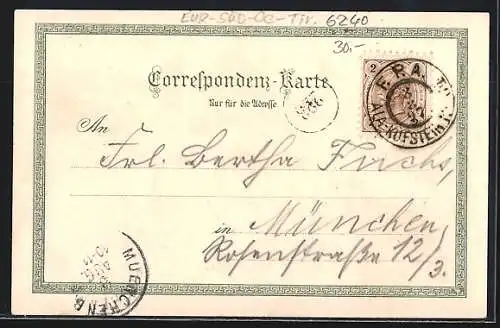 EUR-SÜD-OE-Tir. 6240
30.-
2
Correspondenz-Karte
Nur für die Adresse.
An
Frl. Bertha Fuchs,
in München
Rosenstraße 12/3.
MUENCHEN